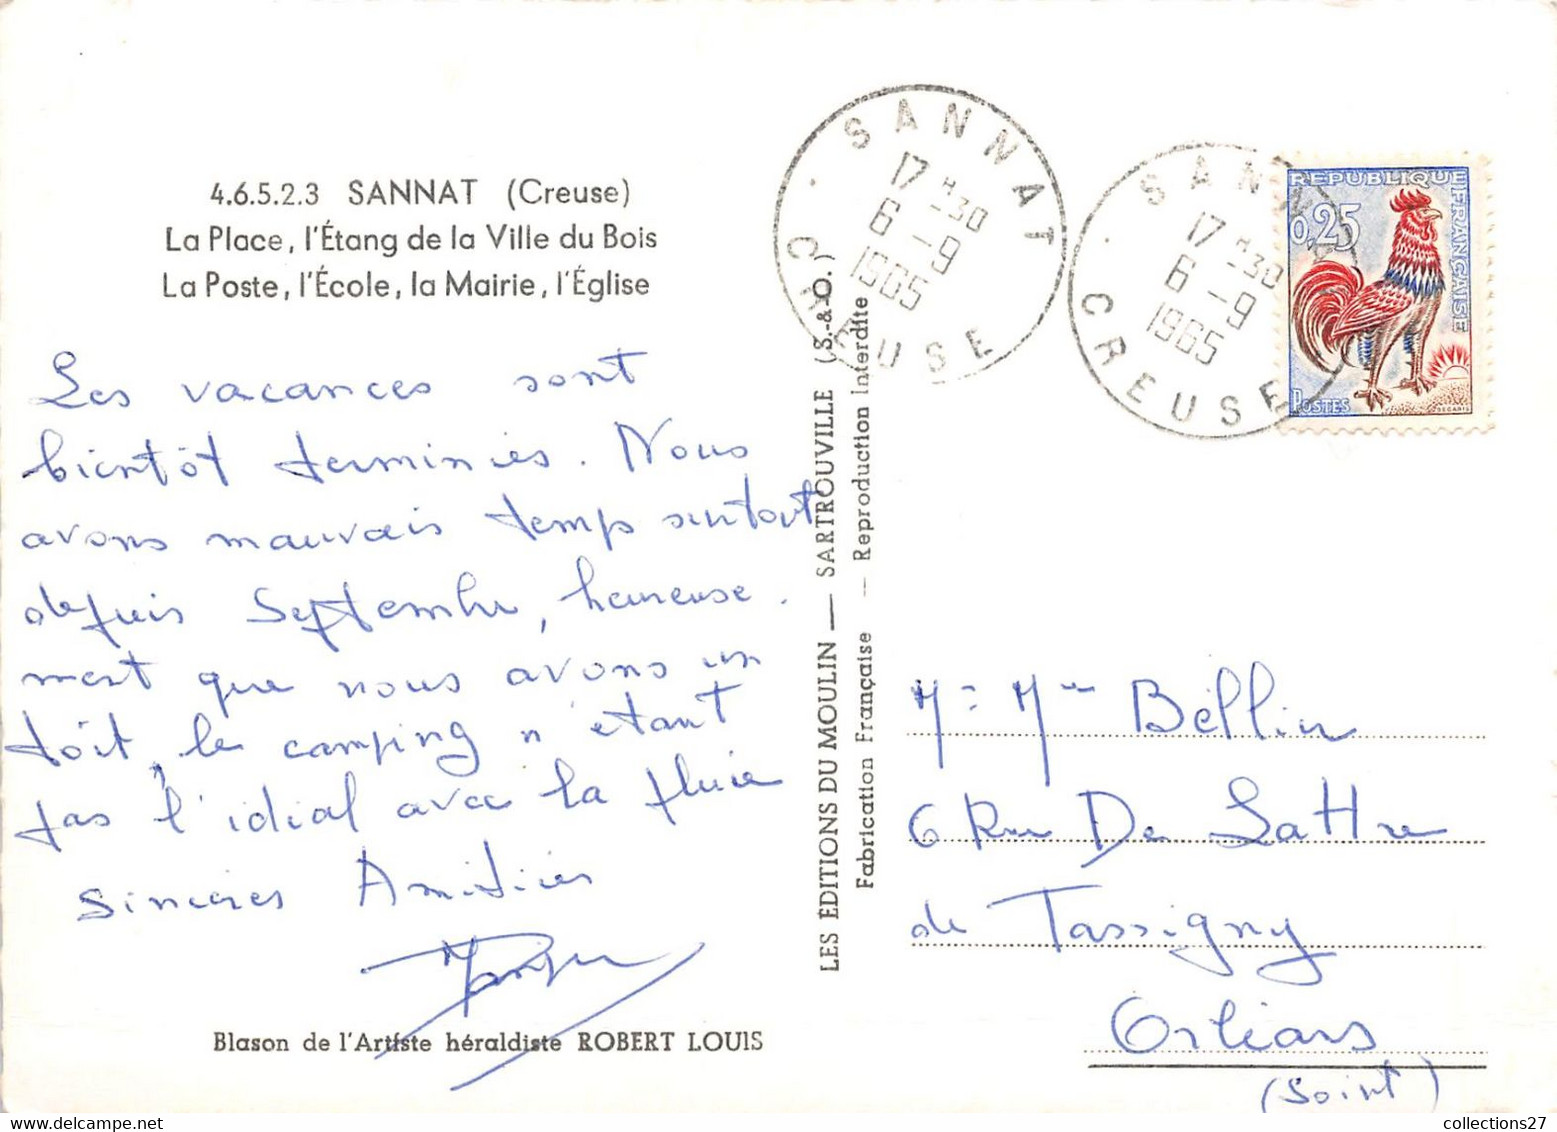 4.6.5.2.3 SANNAT (Creuse)
La Place, l'Étang de la Ville du Bois
La Poste, l'École, la Mairie, l'Église
Les vacances sont
bientôt terminées. Nous
avons mauvais temps surtout
depuis Septembre, heureuse.
ment que nous avons un
tôit, le camping n'étant
pas l'idéal avec la pluie
Sincères Amitiés
Blason de l'Artiste héraldiste ROBERT LOUIS
LES EDITIONS DU MOULIN — SARTROUVILLE (S.-&-O.)
Fabrication Française — Reproduction Interdite
SANNAT
17 H -30
6 -9
1965
CREUSE
SANN
17 H -30
6 -9
1965
CREUSE
REPUBLIQUE FRANÇAISE
0,25
POSTES
DECARIS
Mr Mme Bellin
6 Rue De Lattre
de Tassigny
Orléans
(Loiret)
collections27